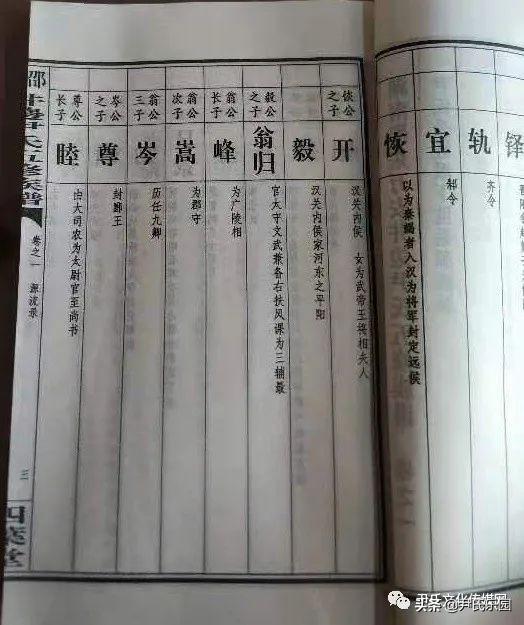 铎
轨
齐令
宜
恢
以为秦谒者入汉为将军封定远侯
恢公
之子
开
汉关内侯 女为武帝王将相夫人
毅
汉关内侯家河东之平阳
毅公
之子
翁归
官太守文武兼备右扶风课为三辅最
翁公
长子
峰
为广陵相
翁公
次子
嵩
为郡守
翁公
三子
岑
历任九卿
岑公
之子
尊
尊公
长子
睦
由大司农为太尉官至尚书
氏五修族谱
卷之一 源流录
三
尹氏文化传媒网
头条 @尹氏乐园